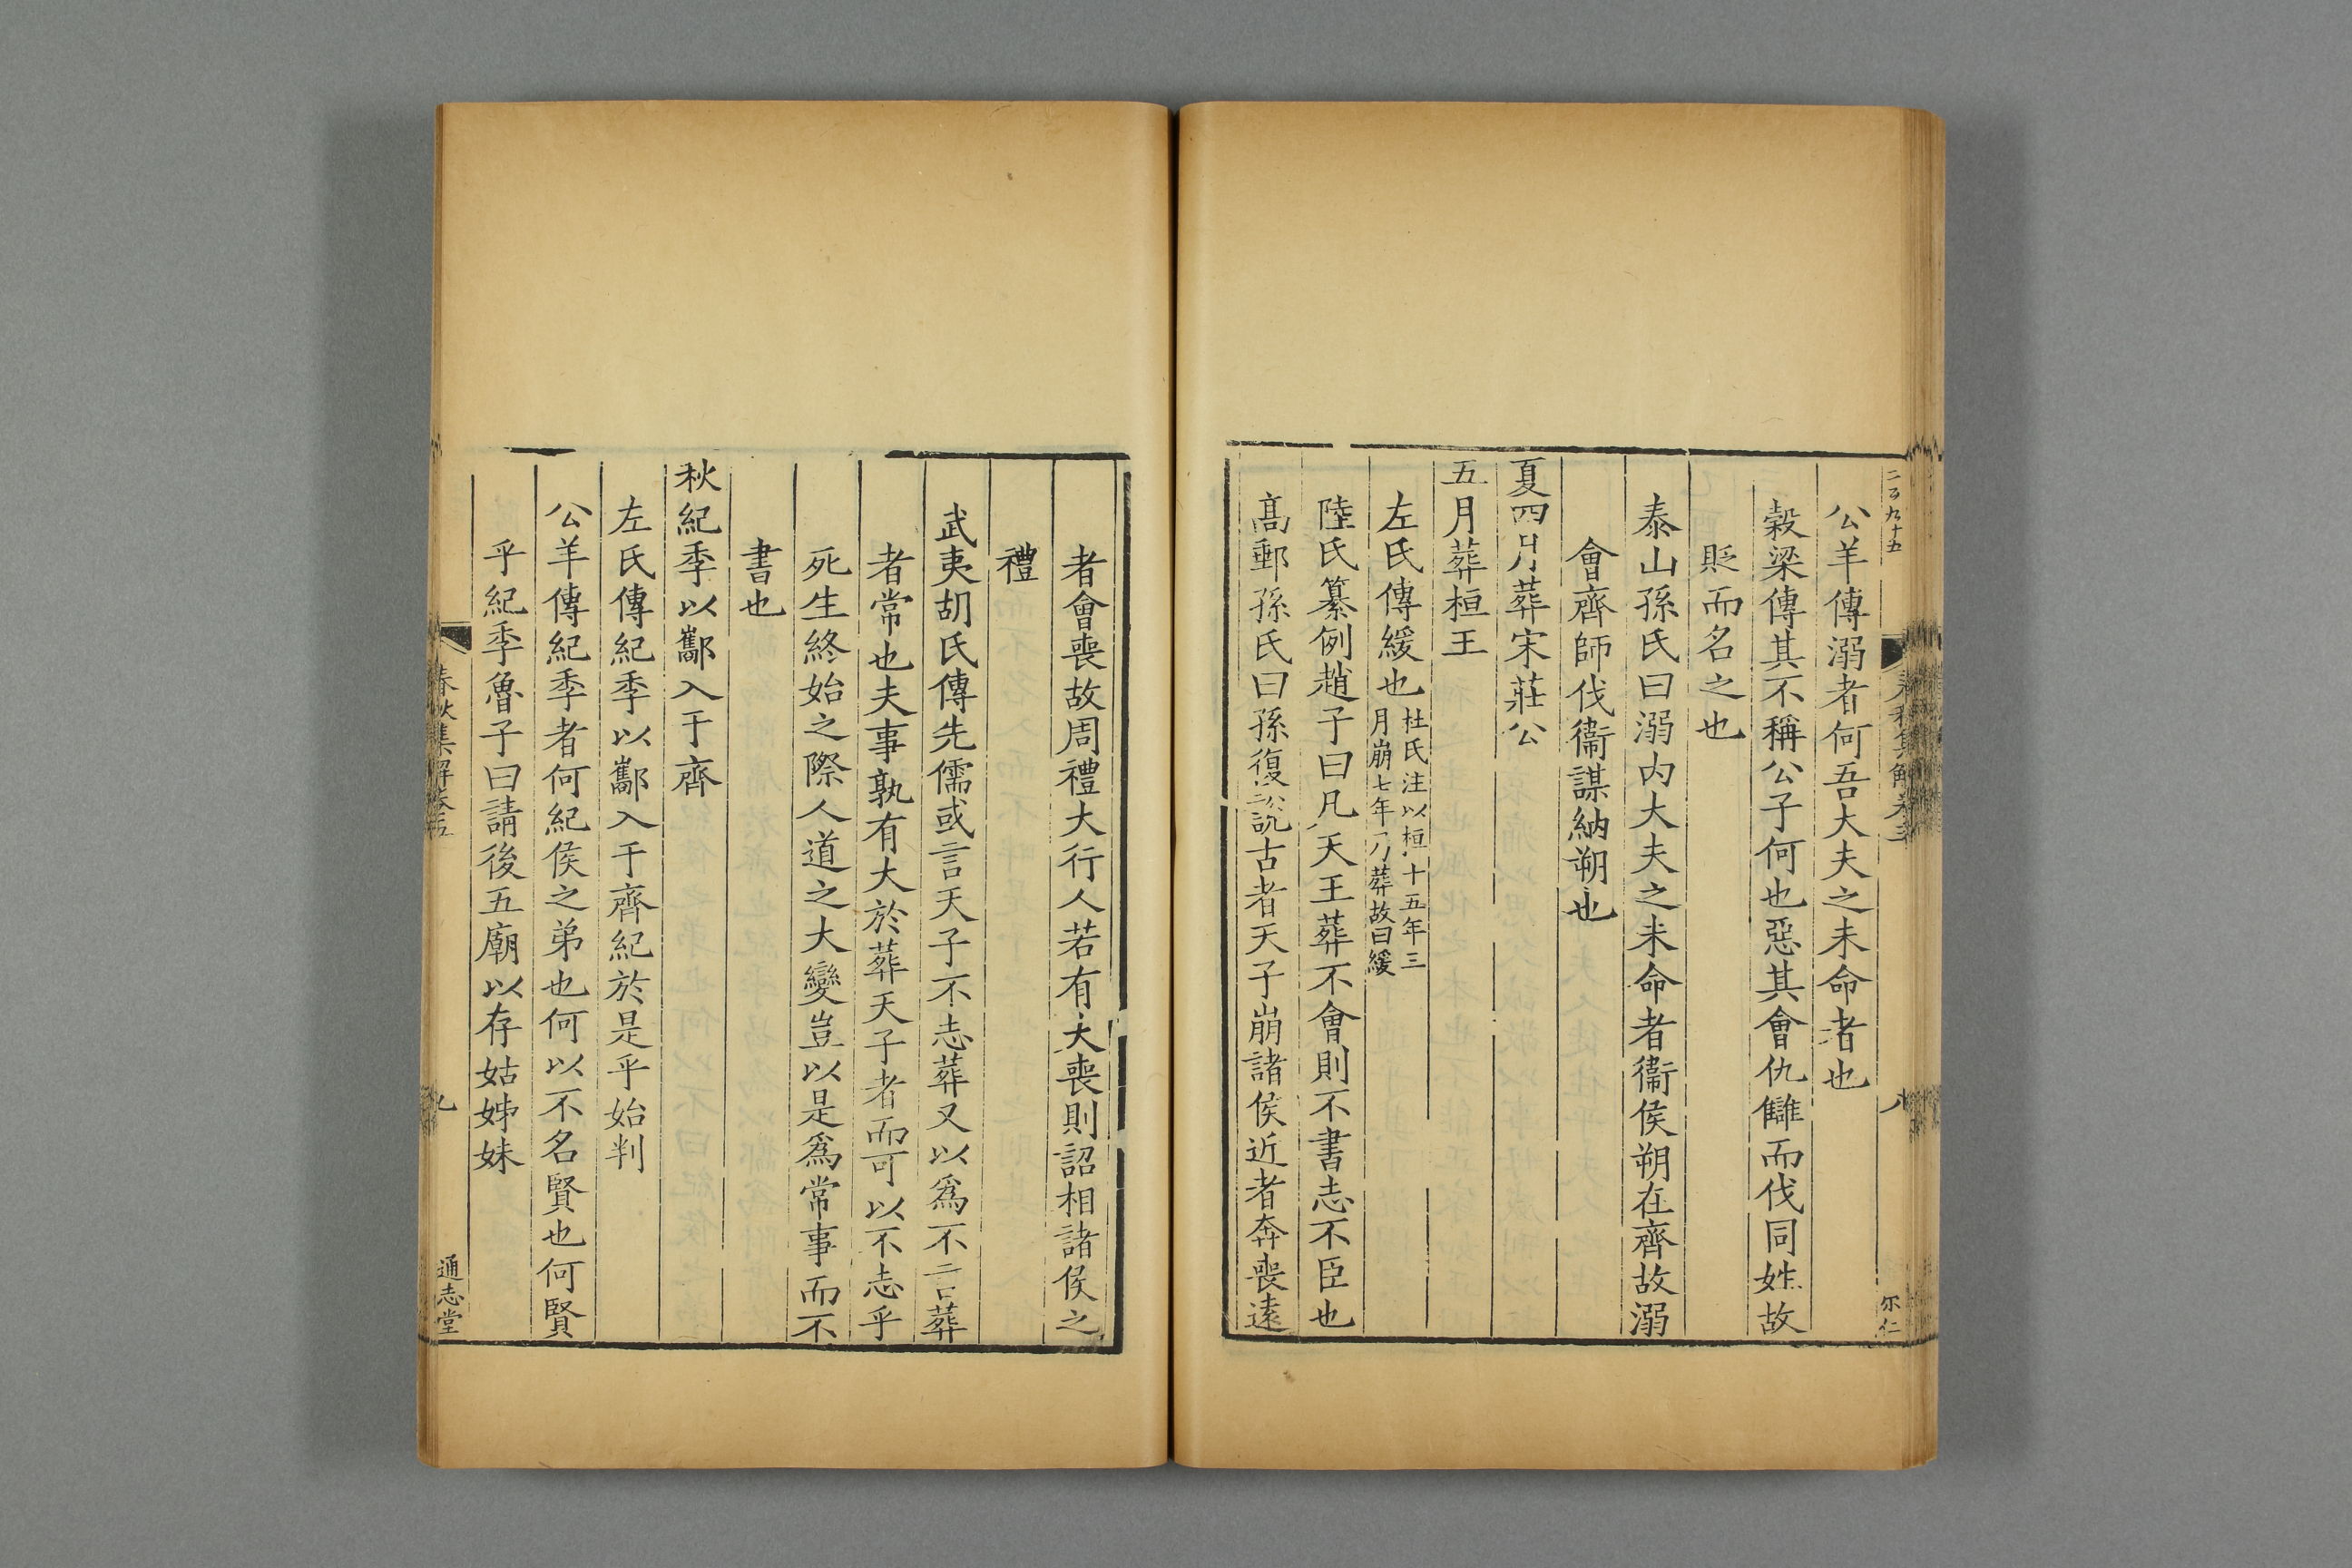 二百九十五
春秋集解卷五
八
尔仁
公羊傳溺者何吾大夫之未命者也
榖梁傳其不稱公子何也惡其會仇讎而伐同姓故
貶而名之也
泰山孫氏曰溺内大夫之未命者衞侯朔在齊故溺
會齊師伐衞謀納朔也
夏四月葬宋莊公
五月葬桓王
左氏傳緩也
杜氏注以桓十五年三
月崩七年乃葬故曰緩
陸氏纂例趙子曰凡天王葬不會則不書志不臣也
髙郵孫氏曰孫復說古者天子崩諸侯近者奔喪逺
者會喪故周禮大行人若有大喪則詔相諸侯之
禮
武夷胡氏傳先儒或言天子不志葬又以爲不言葬
者常也夫事孰有大於葬天子者而可以不志乎
死生終始之際人道之大變豈以是爲常事而不
書也
秋紀季以酅入于齊
左氏傳紀季以酅入于齊紀於是乎始判
公羊傳紀季者何紀侯之弟也何以不名賢也何賢
乎紀季魯子曰請後五廟以存姑姊妹
春秋集解卷五
九
通志堂